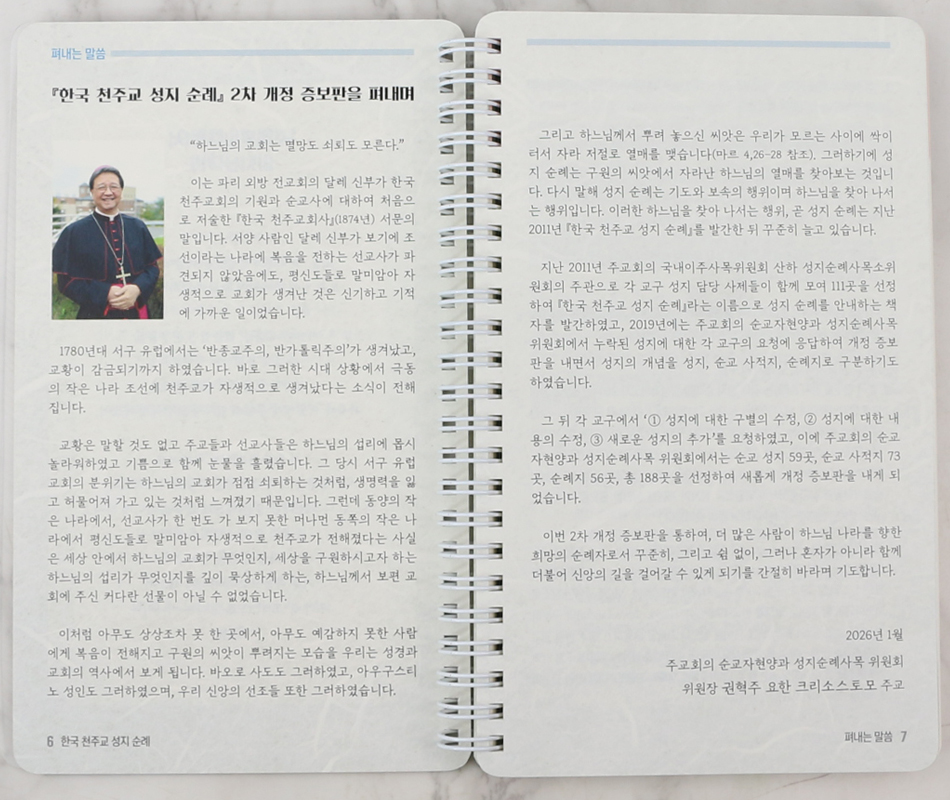 펴내는 말씀
『한국 천주교 성지 순례』 2차 개정 증보판을 펴내며
“하느님의 교회는 멸망도 쇠퇴도 모른다.”
이는 파리 외방 전교회의 달레 신부가 한국
천주교회의 기원과 순교사에 대하여 처음으
로 저술한 『한국 천주교회사』(1874년) 서문의
말입니다. 서양 사람인 달레 신부가 보기에 조
선이라는 나라에 복음을 전하는 선교사가 파
견되지 않았음에도, 평신도들로 말미암아 자
생적으로 교회가 생겨난 것은 신기하고 기적
에 가까운 일이었습니다.
1780년대 서구 유럽에서는 ‘반종교주의, 반가톨릭주의’가 생겨났고,
교황이 감금되기까지 하였습니다. 바로 그러한 시대 상황에서 극동
의 작은 나라 조선에 천주교가 자생적으로 생겨났다는 소식이 전해
집니다.
교황은 말할 것도 없고 주교들과 선교사들은 하느님의 섭리에 몹시
놀라워하였고 기쁨으로 함께 눈물을 흘렸습니다. 그 당시 서구 유럽
교회의 분위기는 하느님의 교회가 점점 쇠퇴하는 것처럼, 생명력을 잃
고 허물어져 가고 있는 것처럼 느껴졌기 때문입니다. 그런데 동양의 작
은 나라에서, 선교사가 한 번도 가 보지 못한 머나먼 동쪽의 작은 나
라에서 평신도들로 말미암아 자생적으로 천주교가 전해졌다는 사실
은 세상 안에서 하느님의 교회가 무엇인지, 세상을 구원하시고자 하는
하느님의 섭리가 무엇인지를 깊이 묵상하게 하는, 하느님께서 보편 교
회에 주신 커다란 선물이 아닐 수 없었습니다.
이처럼 아무도 상상조차 못 한 곳에서, 아무도 예감하지 못한 사람
에게 복음이 전해지고 구원의 씨앗이 뿌려지는 모습을 우리는 성경과
교회의 역사에서 보게 됩니다. 바오로 사도도 그러하였고, 아우구스티
노 성인도 그러하였으며, 우리 신앙의 선조들 또한 그러하였습니다.
6 한국 천주교 성지 순례
그리고 하느님께서 뿌려 놓으신 씨앗은 우리가 모르는 사이에 싹이
터서 자라 저절로 열매를 맺습니다(마르 4,26-28 참조). 그러하기에 성
지 순례는 구원의 씨앗에서 자라난 하느님의 열매를 찾아보는 것입니
다. 다시 말해 성지 순례는 기도와 보속의 행위이며 하느님을 찾아 나서
는 행위입니다. 이러한 하느님을 찾아 나서는 행위, 곧 성지 순례는 지난
2011년 『한국 천주교 성지 순례』를 발간한 뒤 꾸준히 늘고 있습니다.
지난 2011년 주교회의 국내이주사목위원회 산하 성지순례사목소위
원회의 주관으로 각 교구 성지 담당 사제들이 함께 모여 111곳을 선정
하여 『한국 천주교 성지 순례』라는 이름으로 성지 순례를 안내하는 책
자를 발간하였고, 2019년에는 주교회의 순교자현양과 성지순례사목
위원회에서 누락된 성지에 대한 각 교구의 요청에 응답하여 개정 증보
판을 내면서 성지의 개념을 성지, 순교 사적지, 순례지로 구분하기도
하였습니다.
그 뒤 각 교구에서 ‘① 성지에 대한 구별의 수정, ② 성지에 대한 내
용의 수정, ③ 새로운 성지의 추가’를 요청하였고, 이에 주교회의 순교
자현양과 성지순례사목 위원회에서는 순교 성지 59곳, 순교 사적지 73
곳, 순례지 56곳, 총 188곳을 선정하여 새롭게 개정 증보판을 내게 되
었습니다.
이번 2차 개정 증보판을 통하여, 더 많은 사람이 하느님 나라를 향한
희망의 순례자로서 꾸준히, 그리고 쉼 없이, 그러나 혼자가 아니라 함께
더불어 신앙의 길을 걸어갈 수 있게 되기를 간절히 바라며 기도합니다.
2026년 1월
주교회의 순교자현양과 성지순례사목 위원회
위원장 권혁주 요한 크리소스토모 주교
펴내는 말씀 7